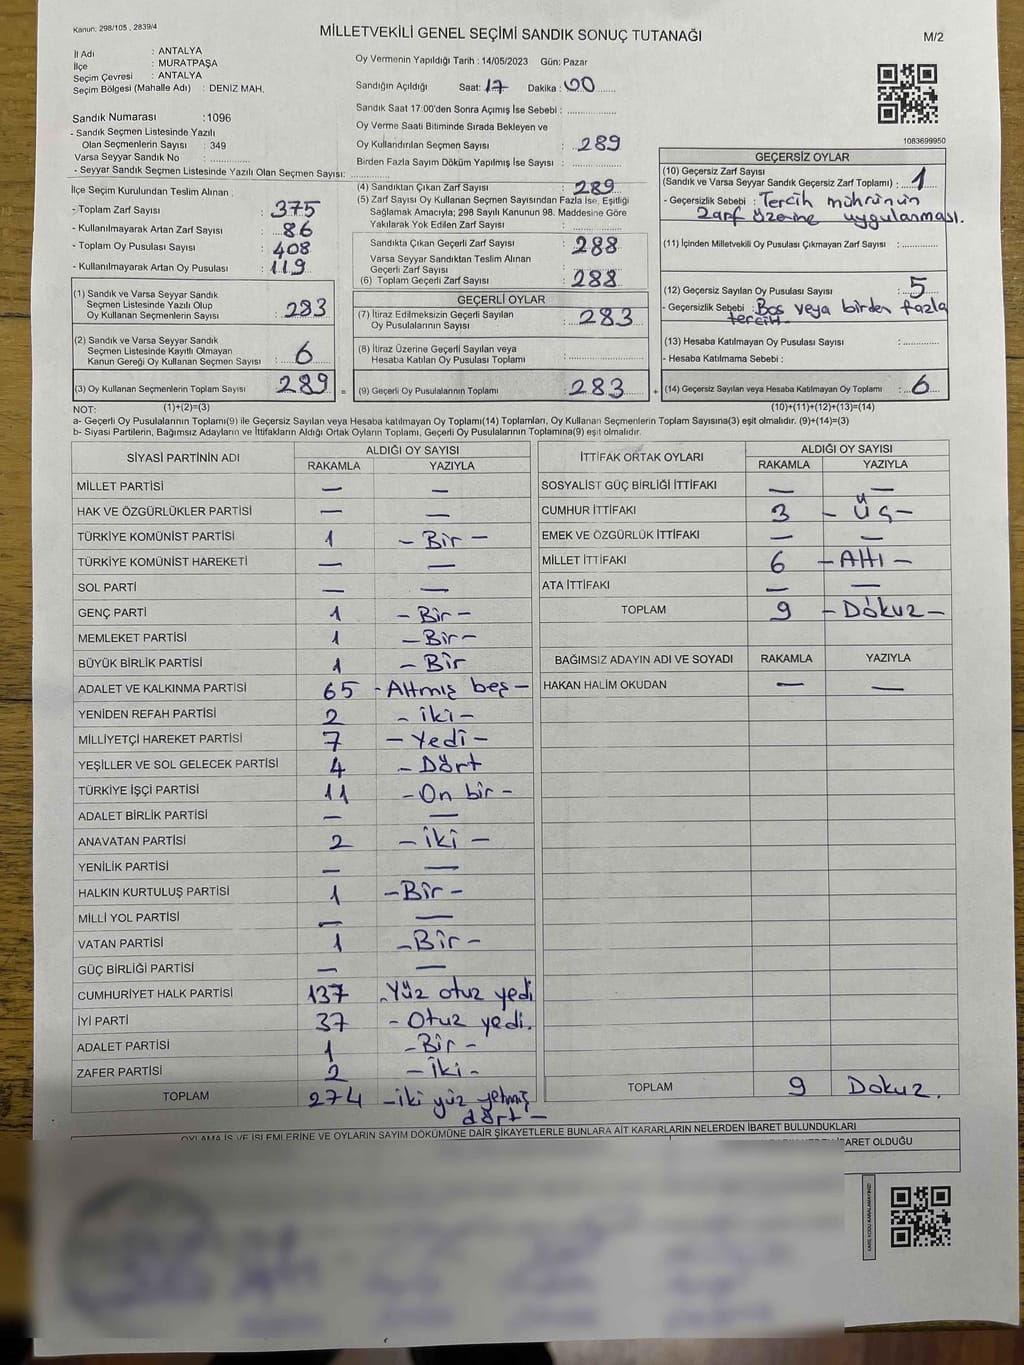 Kanun: 298/105 , 2839/4
MİLLETVEKİLİ GENEL SEÇİMİ SANDIK SONUÇ TUTANAĞI
M/2
İl Adı : ANTALYA
İlçe : MURATPAŞA
Seçim Çevresi : ANTALYA
Seçim Bölgesi (Mahalle Adı) : DENİZ MAH.
Sandık Numarası :1096
- Sandık Seçmen Listesinde Yazılı
Olan Seçmenlerin Sayısı : 349
Varsa Seyyar Sandık No :
- Seyyar Sandık Seçmen Listesinde Yazılı Olan Seçmen Sayısı:
Oy Vermenin Yapıldığı Tarih : 14/05/2023 Gün: Pazar
Sandığın Açıldığı Saat: 17 Dakika : 00
Sandık Saat 17:00'den Sonra Açımış İse Sebebi :
Oy Verme Saati Bitiminde Sırada Bekleyen ve
Oy Kullandırılan Seçmen Sayısı : 289
Birden Fazla Sayım Döküm Yapılmış İse Sayısı :
1083699950
İlçe Seçim Kurulundan Teslim Alınan :
- Toplam Zarf Sayısı : 375
- Kullanılmayarak Artan Zarf Sayısı : 86
- Toplam Oy Pusulası Sayısı : 408
- Kullanılmayarak Artan Oy Pusulası : 119
(1) Sandık ve Varsa Seyyar Sandık
Seçmen Listesinde Yazılı Olup
Oy Kullanan Seçmenlerin Sayısı : 283
(2) Sandık ve Varsa Seyyar Sandık
Seçmen Listesinde Kayıtlı Olmayan
Kanun Gereği Oy Kullanan Seçmen Sayısı : 6
(3) Oy Kullanan Seçmenlerin Toplam Sayısı : 289 =
(1)+(2)=(3)
(4) Sandıktan Çıkan Zarf Sayısı : 289
(5) Zarf Sayısı Oy Kullanan Seçmen Sayısından Fazla İse, Eşitliği
Sağlamak Amacıyla; 298 Sayılı Kanunun 98. Maddesine Göre
Yakılarak Yok Edilen Zarf Sayısı :
Sandıkta Çıkan Geçerli Zarf Sayısı : 288
Varsa Seyyar Sandıktan Teslim Alınan
Geçerli Zarf Sayısı :
(6) Toplam Geçerli Zarf Sayısı : 288
GEÇERLİ OYLAR
(7) İtiraz Edilmeksizin Geçerli Sayılan
Oy Pusulalarının Sayısı : 283
(8) İtiraz Üzerine Geçerli Sayılan veya
Hesaba Katılan Oy Pusulası Toplamı :
(9) Geçerli Oy Pusulalarının Toplamı : 283 +
GEÇERSİZ OYLAR
(10) Geçersiz Zarf Sayısı
(Sandık ve Varsa Seyyar Sandık Geçersiz Zarf Toplamı) : 1
- Geçersizlik Sebebi : Tercih mührünün
zarf üzerine uygulanması.
(11) İçinden Milletvekili Oy Pusulası Çıkmayan Zarf Sayısı :
(12) Geçersiz Sayılan Oy Pusulası Sayısı : 5
- Geçersizlik Sebebi : Boş veya birden fazla
tercih.
(13) Hesaba Katılmayan Oy Pusulası Sayısı :
- Hesaba Katılmama Sebebi :
(14) Geçersiz Sayılan veya Hesaba Katılmayan Oy Toplamı : 6
(10)+(11)+(12)+(13)=(14)
NOT:
a- Geçerli Oy Pusulalarının Toplamı(9) ile Geçersiz Sayılan veya Hesaba katılmayan Oy Toplamı(14) Toplamları, Oy Kullanan Seçmenlerin Toplam Sayısına(3) eşit olmalıdır. (9)+(14)=(3)
b- Siyasi Partilerin, Bağımsız Adayların ve İttifakların Aldığı Ortak Oyların Toplamı, Geçerli Oy Pusulalarının Toplamına(9) eşit olmalıdır.
SİYASİ PARTİNİN ADI ALDIĞI OY SAYISI
RAKAMLA YAZIYLA
MİLLET PARTİSİ — —
HAK VE ÖZGÜRLÜKLER PARTİSİ — —
TÜRKİYE KOMÜNİST PARTİSİ 1 - Bir -
TÜRKİYE KOMÜNİST HAREKETİ — —
SOL PARTİ — —
GENÇ PARTİ 1 - Bir -
MEMLEKET PARTİSİ 1 - Bir -
BÜYÜK BİRLİK PARTİSİ 1 - Bir
ADALET VE KALKINMA PARTİSİ 65 - Altmış beş -
YENİDEN REFAH PARTİSİ 2 - iki -
MİLLİYETÇİ HAREKET PARTİSİ 7 - Yedi -
YEŞİLLER VE SOL GELECEK PARTİSİ 4 - Dört
TÜRKİYE İŞÇİ PARTİSİ 11 - On bir -
ADALET BİRLİK PARTİSİ — —
ANAVATAN PARTİSİ 2 - iki -
YENİLİK PARTİSİ — —
HALKIN KURTULUŞ PARTİSİ 1 - Bir -
MİLLİ YOL PARTİSİ — —
VATAN PARTİSİ 1 - Bir -
GÜÇ BİRLİĞİ PARTİSİ — —
CUMHURİYET HALK PARTİSİ 137 - Yüz otuz yedi
İYİ PARTİ 37 - Otuz yedi.
ADALET PARTİSİ 1 - Bir -
ZAFER PARTİSİ 2 - İki -
TOPLAM 274 - iki yüz yetmiş
dört -
İTTİFAK ORTAK OYLARI ALDIĞI OY SAYISI
RAKAMLA YAZIYLA
SOSYALİST GÜÇ BİRLİĞİ İTTİFAKI — —
CUMHUR İTTİFAKI 3 - Üç -
EMEK VE ÖZGÜRLÜK İTTİFAKI — —
MİLLET İTTİFAKI 6 - Altı -
ATA İTTİFAKI — —
TOPLAM 9 - Dokuz -
BAĞIMSIZ ADAYIN ADI VE SOYADI RAKAMLA YAZIYLA
HAKAN HALİM OKUDAN — —
TOPLAM 9 Dokuz.
OYLAMA İŞ VE İŞLEMLERİNE VE OYLARIN SAYIM DÖKÜMÜNE DAİR ŞİKAYETLERLE BUNLARA AİT KARARLARIN NELERDEN İBARET BULUNDUKLARI
İBARET OLDUĞU